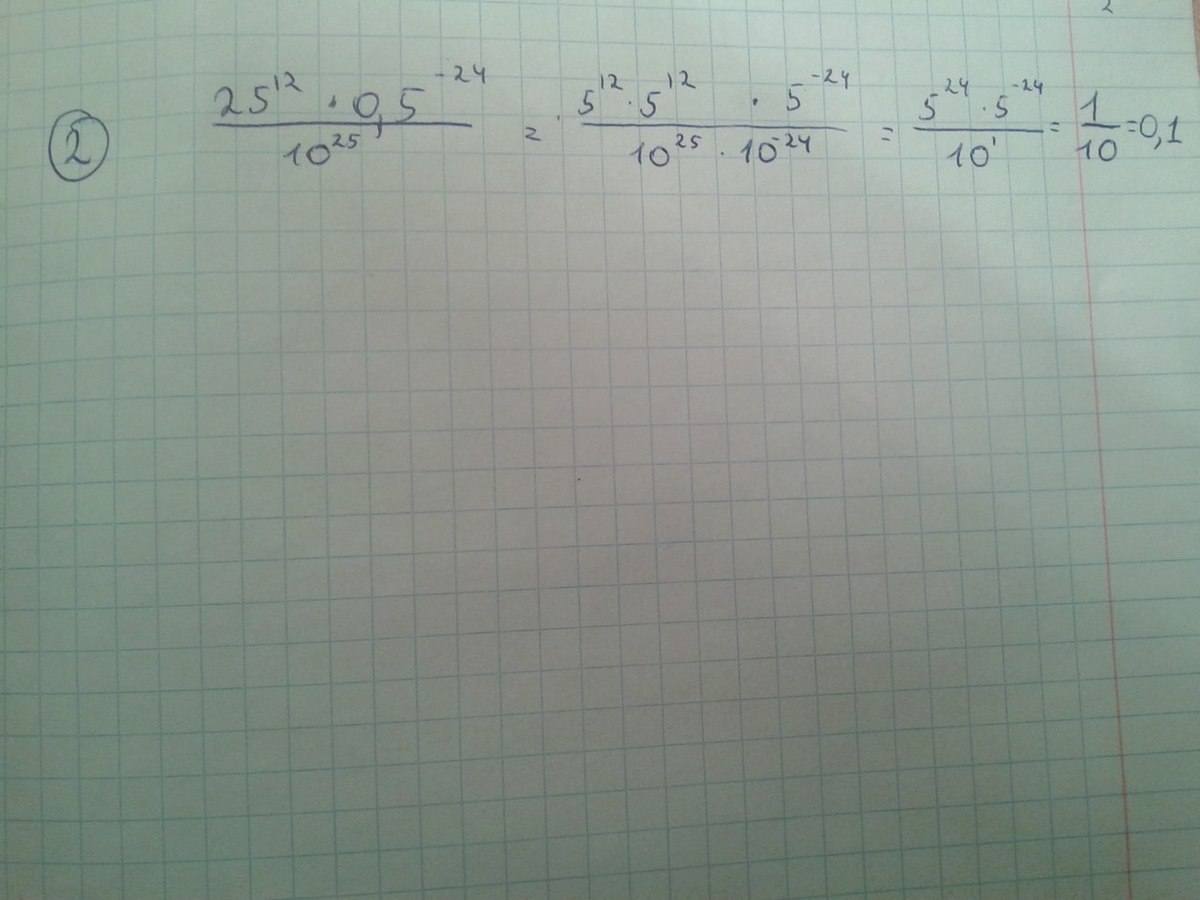 ② 25¹² · 0,5⁻²⁴ / 10²⁵ = 5¹² · 5¹² · 5⁻²⁴ / 10²⁵ · 10⁻²⁴ = 5²⁴ · 5⁻²⁴ / 10¹ = 1/10 = 0,1